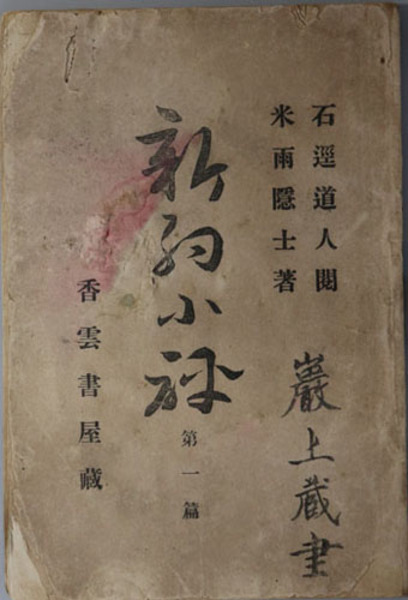 石逕道人閲
米雨隱士著
巖上蔵書
新約小評
第一篇
香雲書屋藏